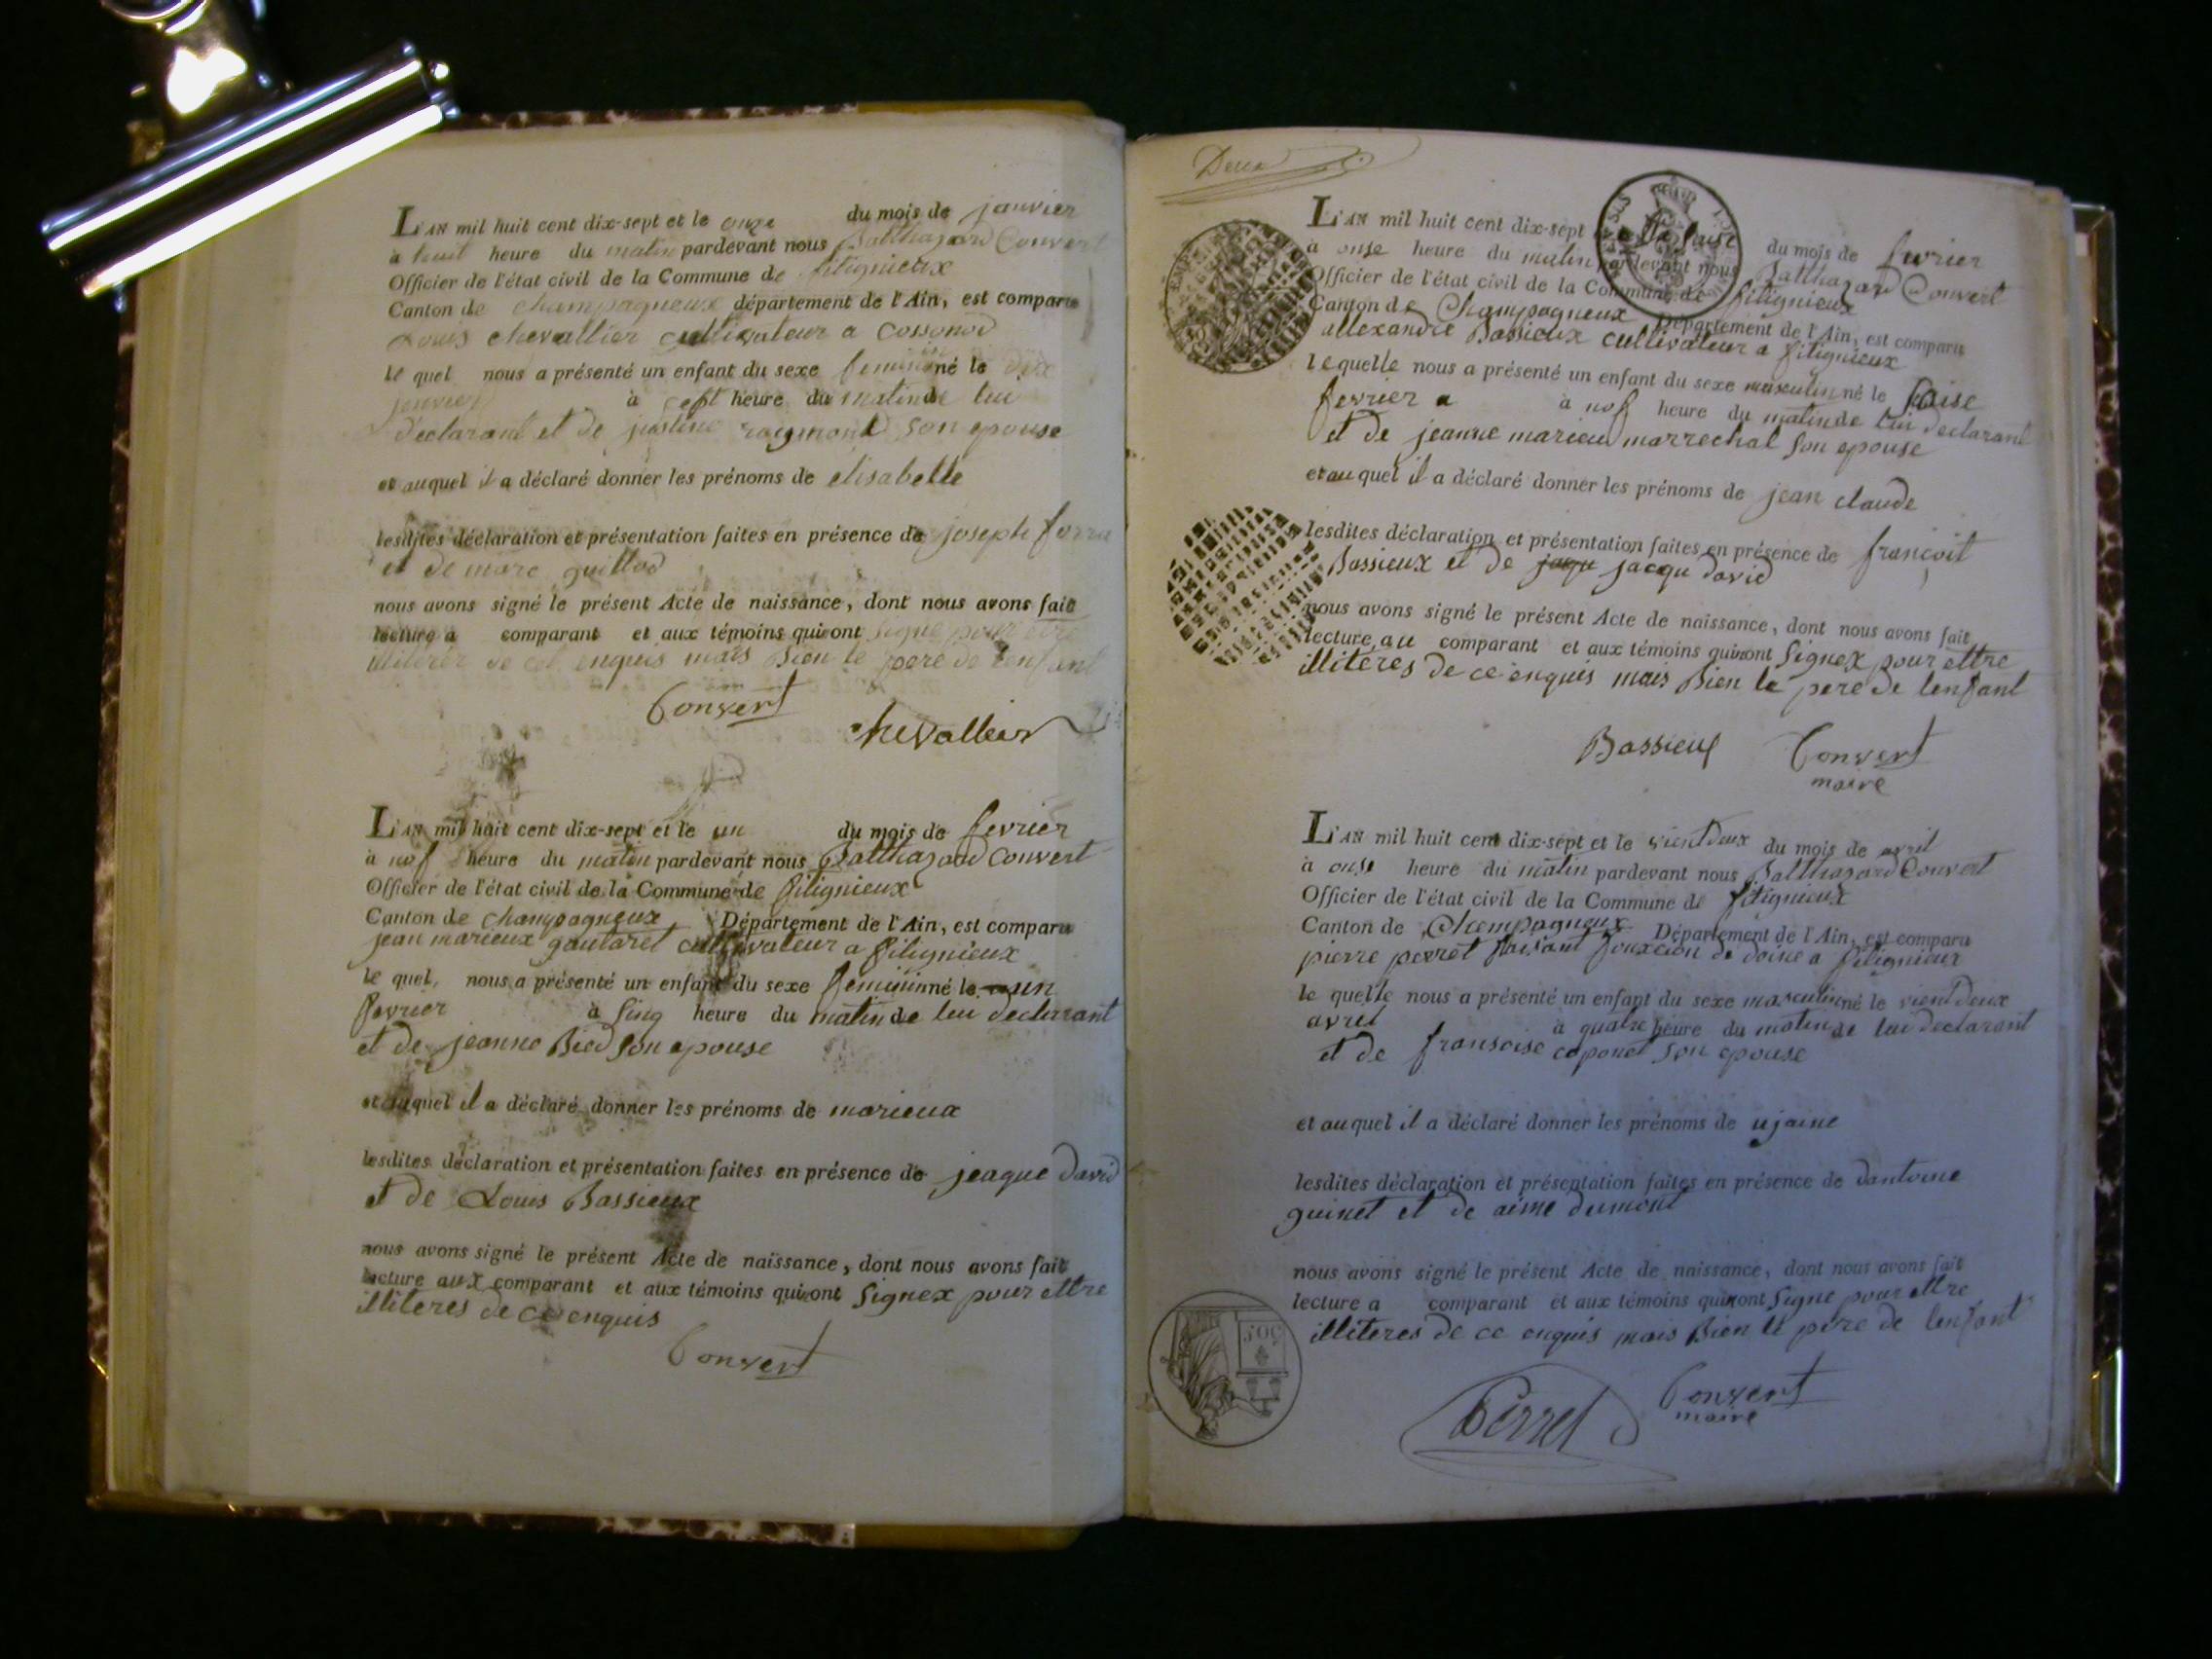 L'AN mil huit cent dix-sept et le onze du mois de janvier
à huit heure du matin pardevant nous Balthazard Convert
Officier de l'état civil de la Commune de fitignieux
Canton de champagneux département de l'Ain, est comparu
Louis chevallier cultivateur a Cossonod
le quel nous a présenté un enfant du sexe feminin né le dix
janvier à sept heure du matin de lui
declarant et de justine raymond son epouse
et auquel il a déclaré donner les prénoms de elisabette
lesdites déclaration et présentation faites en présence de joseph
et de marc guillod
nous avons signé le présent Acte de naissance, dont nous avons fait
lecture a comparant et aux témoins qui ont signe pour etre
illiterer de cel enquis mais Bien le pere de lenfant
Convert
chevallier
L'AN mil huit cent dix-sept et le un du mois de fevrier
à nof heure du matin pardevant nous Balthazard Convert
Officier de l'état civil de la Commune de fitignieux
Canton de champagneux Département de l'Ain, est comparu
jean marieux goutaret cultivateur a fitignieux
le quel, nous a présenté un enfant du sexe feminin né le un
fevrier à sinq heure du matin de lui declarant
et de jeanne Bied son epouse
et auquel il a déclaré donner les prénoms de marieux
lesdites déclaration et présentation faites en présence de jeaque david
et de Louis Bassieux
nous avons signé le présent Acte de naissance, dont nous avons fait
lecture aux comparant et aux témoins qui ont Signex pour ettre
illiteres de ce enquis
Convert
Deux
L'AN mil huit cent dix-sept et le saise du mois de fevrier
à onse heure du matin pardevant nous Balthazard Convert
Officier de l'état civil de la Commune de fitignieux
Canton de Champagneux Département de l'Ain, est comparu
allexandre Bassieux cultivateur a fitignieux
le quelle nous a présenté un enfant du sexe masculin né le saise
fevrier a à nof heure du matin de lui declarant
et de jeanne marieu marrechal son epouse
et au quel il a déclaré donner les prénoms de jean claude
lesdites déclaration et présentation faites en présence de françoit
Bassieux et de jaqu jacqu david
nous avons signé le présent Acte de naissance, dont nous avons fait
lecture au comparant et aux témoins qui ont Signex pour ettre
illitéres de ce enquis mais Bien le pere de lenfant
Bassieux Convert
maire
L'AN mil huit cent dix-sept et le vientdeux du mois de avril
à onse heure du matin pardevant nous Balthazard Convert
Officier de l'état civil de la Commune de fitignieux
Canton de Champagneux Département de l'Ain, est comparu
pierre perret faisant fonxcion de doine a fitignieux
le quelle nous a présenté un enfant du sexe masculin né le vientdeux
avrel à quatre heure du matin de lui declarant
et de fransoise caponet son epouse
et au quel il a déclaré donner les prénoms de ujaine
lesdites déclaration et présentation faites en présence de dantoine
guinet et de aime dumont
nous avons signé le présent Acte de naissance, dont nous avons fait
lecture a comparant et aux témoins qui ont Signe pour ettre
illiteres de ce enquis mais Bien le pere de lenfant
Perret Convert
maire